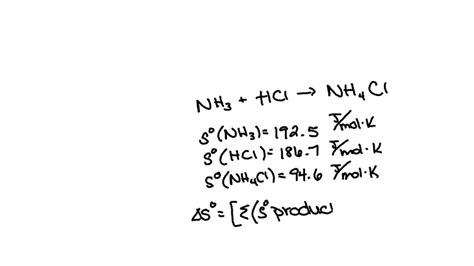 NH₃ + HCl → NH₄Cl
S°(NH₃) = 192.5 J/mol·K
S°(HCl) = 186.7 J/mol·K
S°(NH₄Cl) = 94.6 J/mol·K
ΔS° = [Σ(S° produc